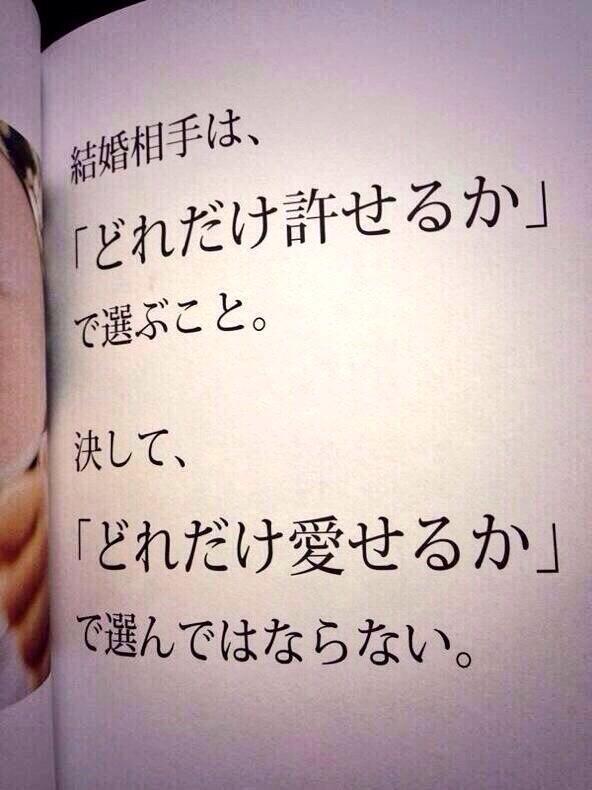 結婚相手は、
「どれだけ許せるか」
で選ぶこと。
決して、
「どれだけ愛せるか」
で選んではならない。